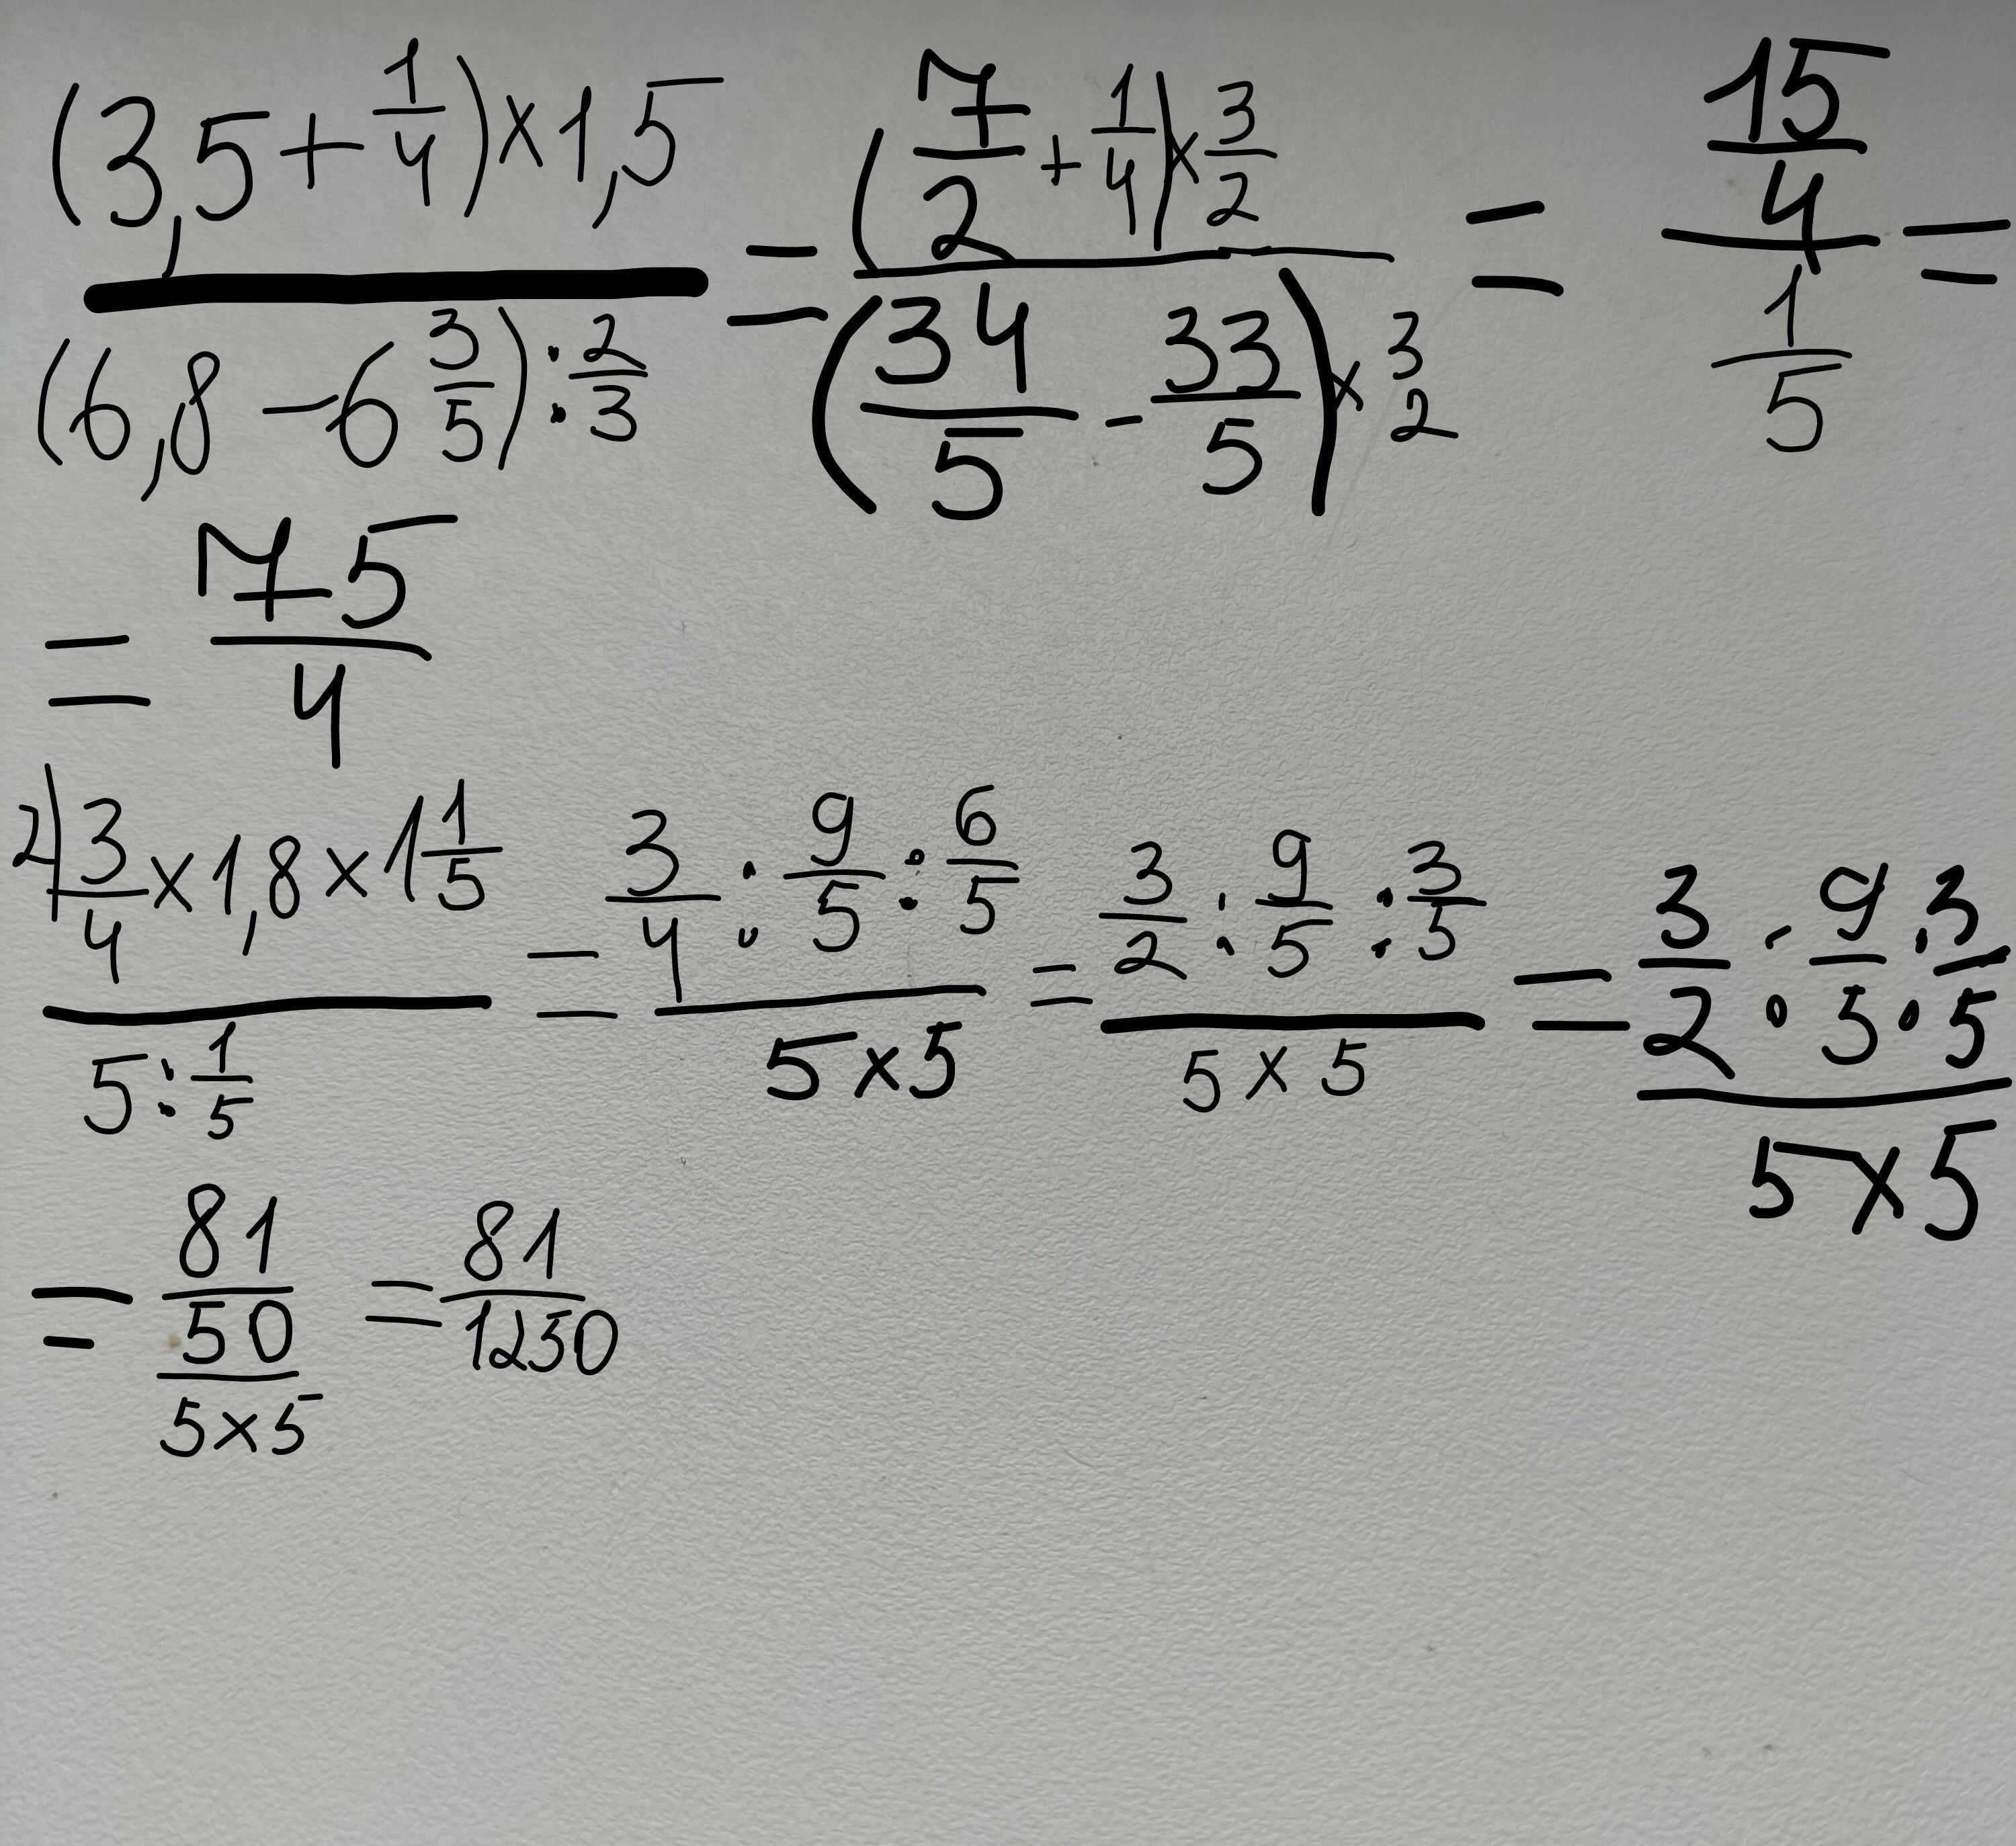 ((3,5 + 1/4) × 1,5) / ((6,8 − 6 3/5) : 2/3) = ((7/2 + 1/4) × 3/2) / ((34/5 − 33/5) × 3/2) = (15/4) / (1/5) =
= 75/4
2) (3/4 × 1,8 × 1 1/5) / (5 : 1/5) = (3/4 : 9/5 : 6/5) / (5 × 5) = (3/2 : 9/5 : 3/5) / (5 × 5) = (3/2 : 9/5 : 3/5) / (5 × 5)
= 81/50/(5 × 5) = 81/1250